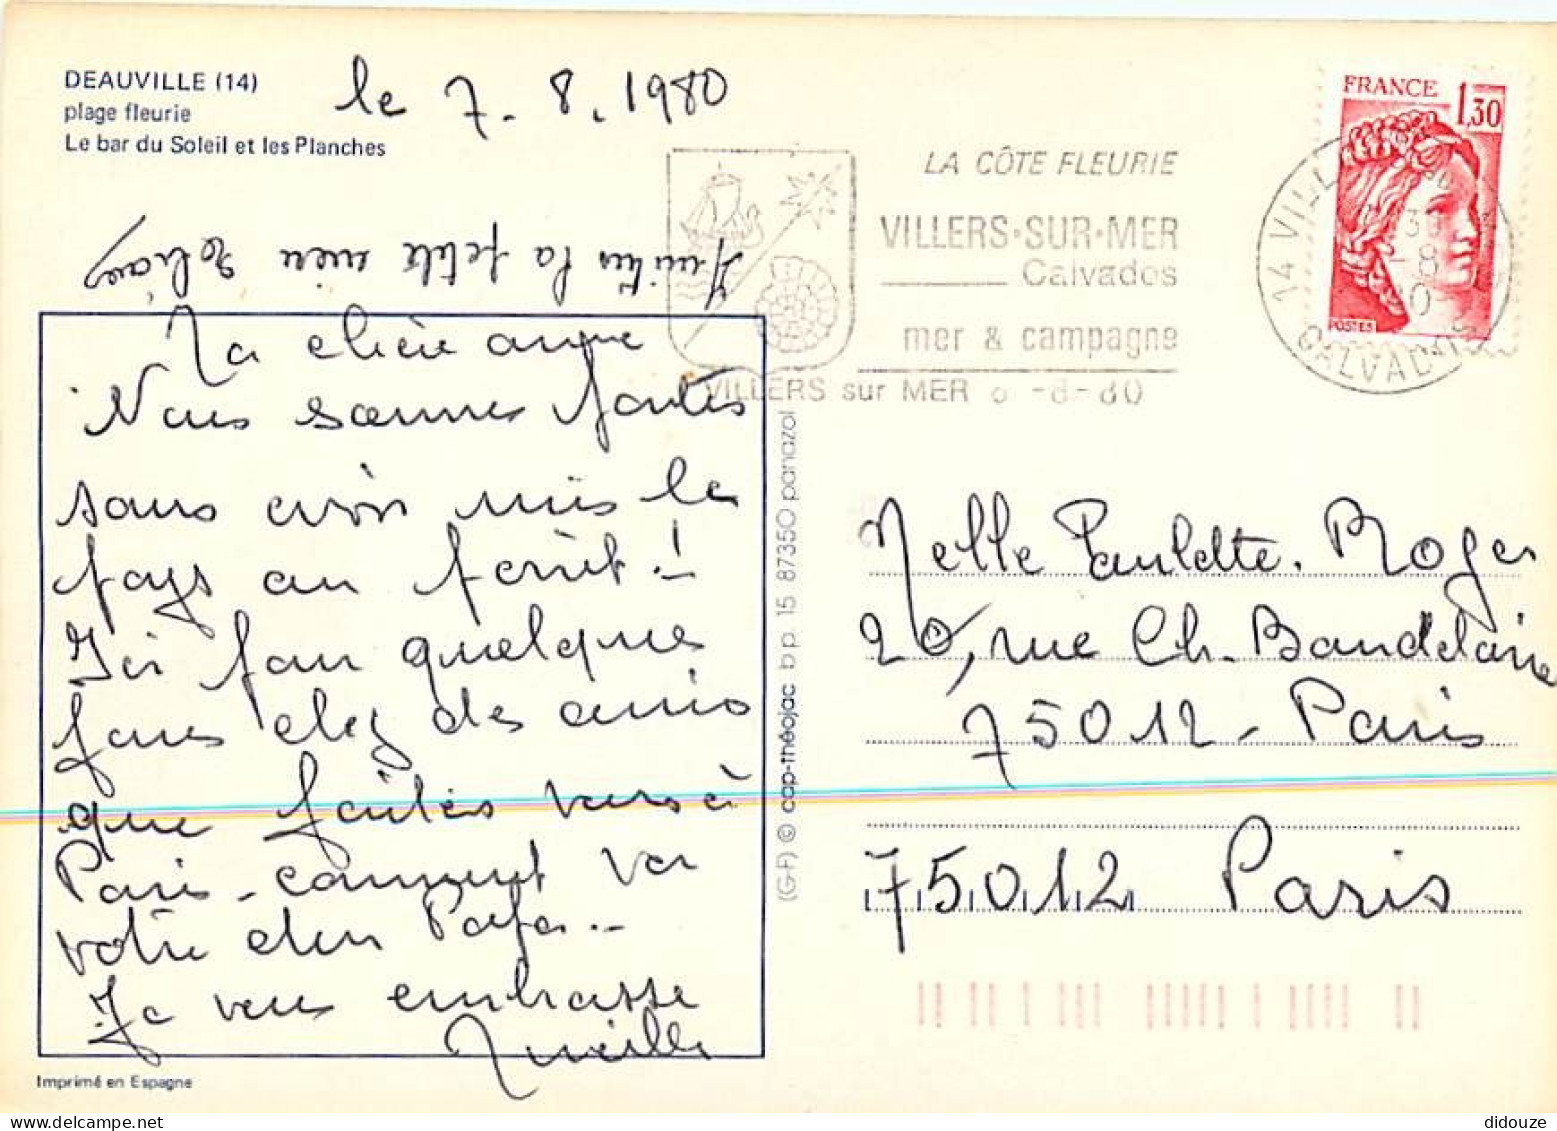 DEAUVILLE (14)
plage fleurie
Le bar du Soleil et les Planches
le 7. 8. 1980
FRANCE 1,30
POSTES
LA CÔTE FLEURIE
VILLERS·SUR·MER
Calvados
mer & campagne
VILLERS sur MER 8 -8-80
14 VILL
CALVADOS
la petite
Ma chère
Nous sommes
sans avoir mis le
pays au
Ici pour quelques
jours chez des amis
que
Paris - comment va
votre cher Papa..
Je vous embrasse
Melle Paulette. Roger
20, rue Ch. Baudelaire
75012 - Paris
75012 Paris
(G-F) © cap-théojac bp. 15 87350 panazol
Imprimé en Espagne
didouze